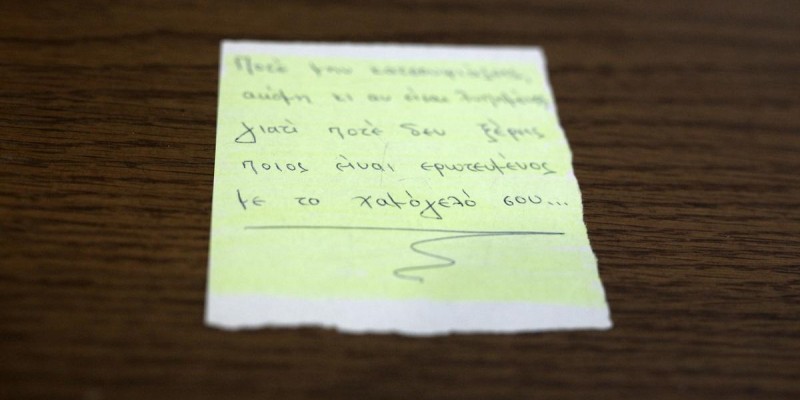 Ποτέ μην κατσουφιάζεις,
ακόμη κι αν είσαι λυπημένος,
γιατί ποτέ δεν ξέρεις
ποιος είναι ερωτευμένος
με το χαμόγελό σου...